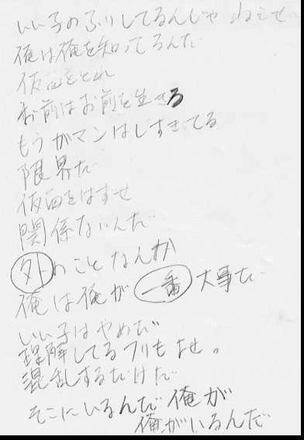 いい子のふりしてるんじゃねえぜ
俺は俺を知ってるんだ
仮面をとれ
お前はお前を生きろ
もうガマンはしすぎてる
限界だ
仮面をはずせ
関係ないんだ
外のことなんか
俺は俺が一番大事だ
いい子はやめだ
理解してるフリもよせ。
混乱するだけだ
そこにいるんだ俺が
俺がいるんだ